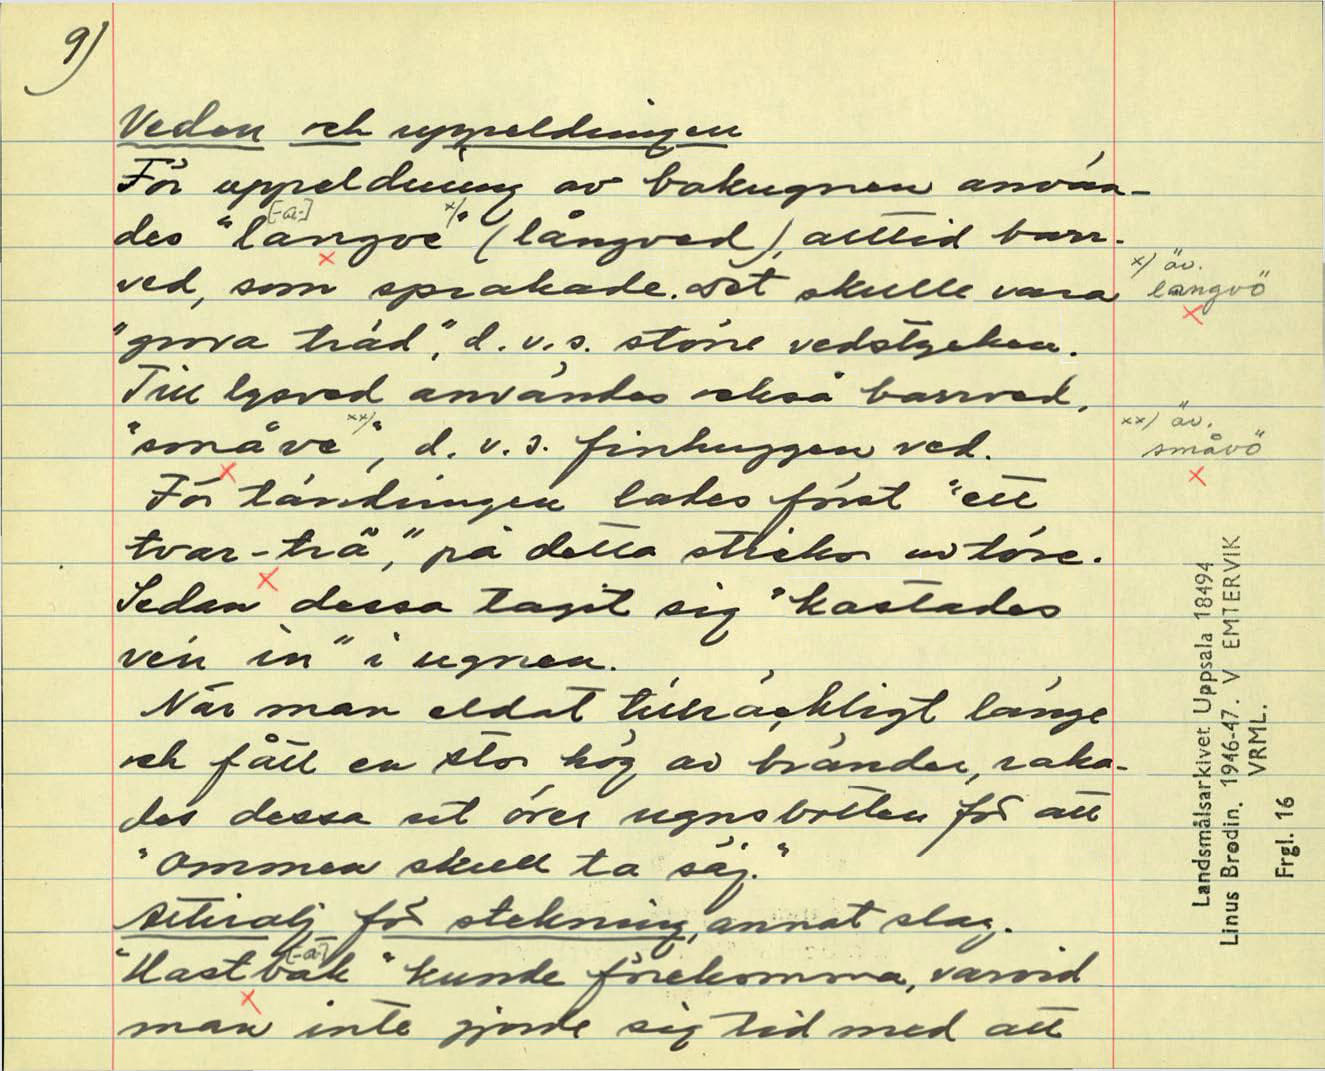 9)
Veden och uppeldningen
För uppeldning av bakugnen använ-
des "langve" x) (långved), alltid barr-
[-a-]
ved, som sprakade. Det skulle vara
"grova träd", d. v. s. större vedstycken.
Till lysved användes också barrved,
"småve" xx), d. v. s. finhuggen ved.
För tändningen lades först "ett
tvar-trä", på detta stickor av töre.
Sedan dessa tagit sig "kastades
ve'n in" i ugnen.
När man eldat tillräckligt länge
och fått en stor hög av bränder, raka-
des dessa ut över ugnsbotten för att
"ommen skull ta säj."
Attiralj för stekning, annat slag.
"Hastbak" kunde förekomma, varvid
[-a-]
man inte gjorde sig tid med att
x) äv.
langvö"
xx) äv.
småvö"
Landsmålsarkivet Uppsala 18494
Linus Brodin. 1946-47. V EMTERVIK
VRML.
Frgl. 16